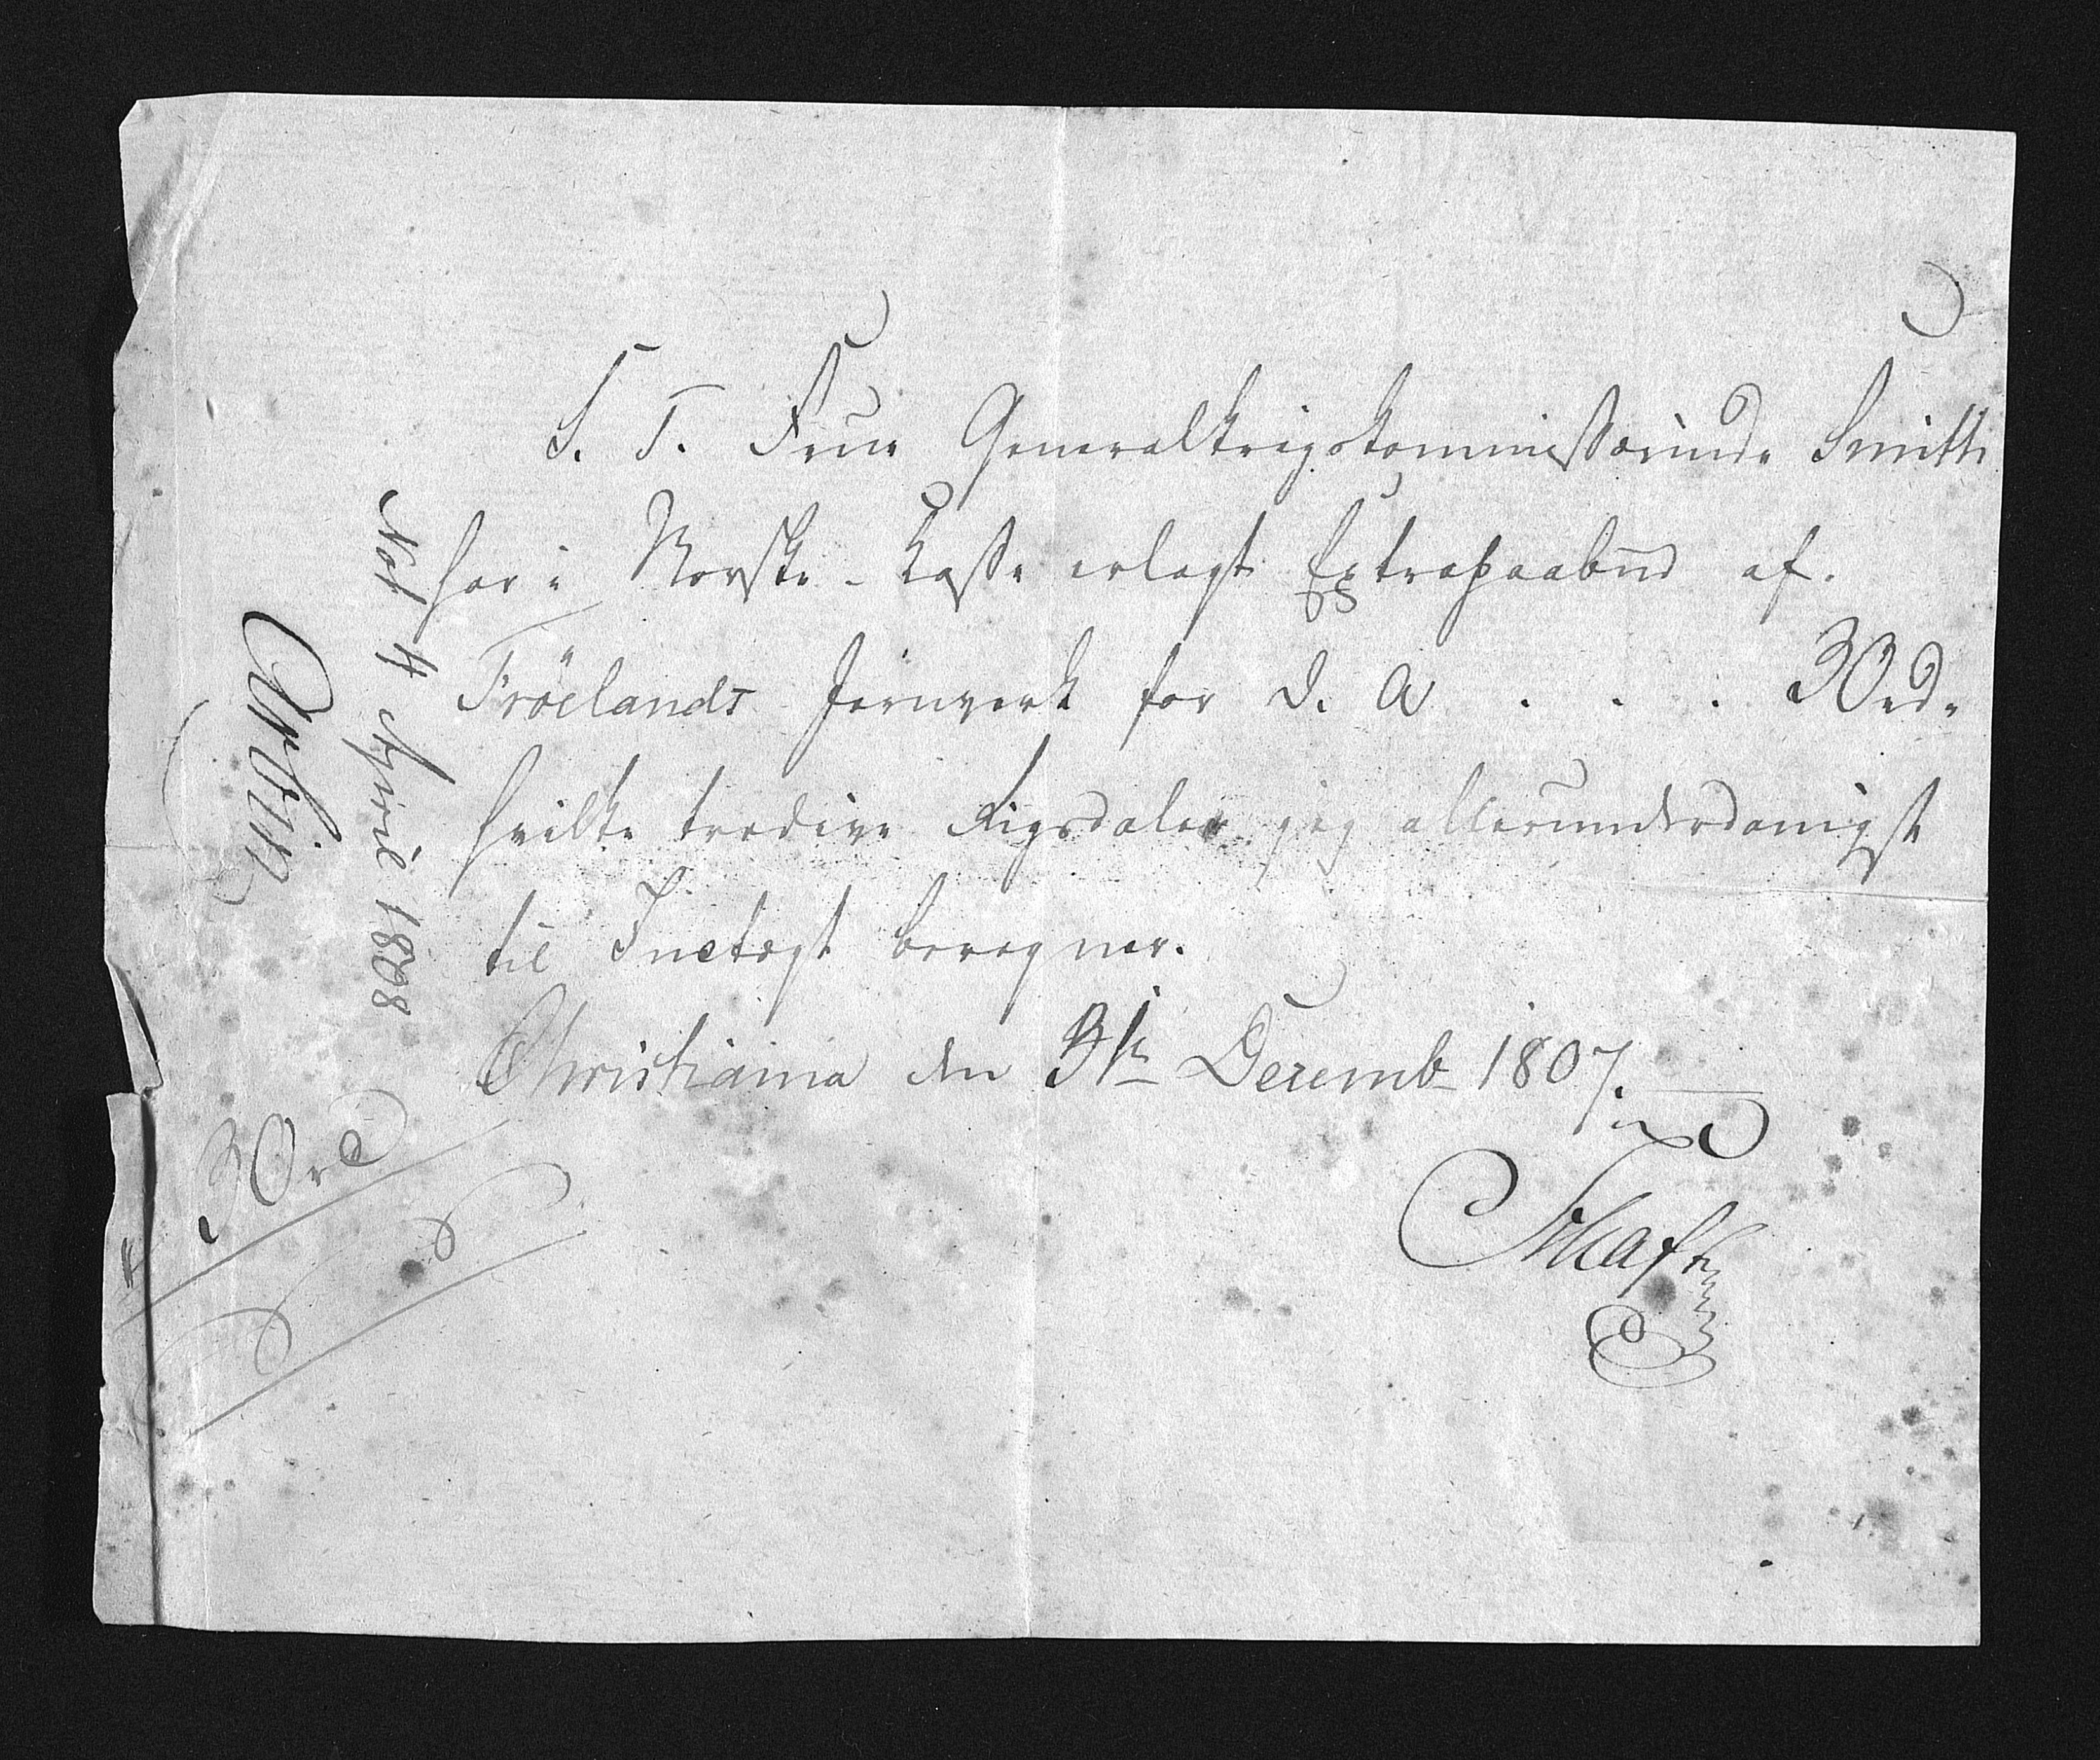 S. T. Frue Generalkrigskommissærinde Smith
har i Norske-Kasse erlagt Extrapaabud af
Fröelands Jernverk for d. A . . . 30 rd.
hvilke tredive Rigsdaler jeg allerunderdanigst
til Indtægt beregner.
Christiania den 31te Decemb 1807.
Not 4 April 1808
30 rd